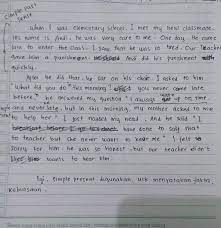 simple past tense
When I was elementary school. I met my best classmate.
His name is Andi. he was very care to me. One day, he came
late to enter the class. I saw that he was so tired. Our teacher
gave him a punishment and did his punishment
quickly.
After he did that, he sat on his chair. I asked to him
" What did you do this morning? you never come late
before." he answered my question " I always get up on time
and never late. but in this morning, my mother asked to me
to help her " I just nodded my head. And he said " I
have done to say that
to teacher but She never want to hear me " I felt so
sorry for him. he was so honest. but our teacher didn't
like wants to hear him.
Simple present digunakan utk menyatakan fakta,
kebiasaan.